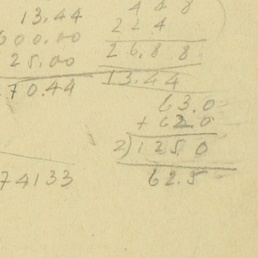 13.44
600.00
25.00
70.44
4 4 8
2 2 4
2 6.8 8
13.44
63.0
+ 62.0
2)125 0
62.5
74133